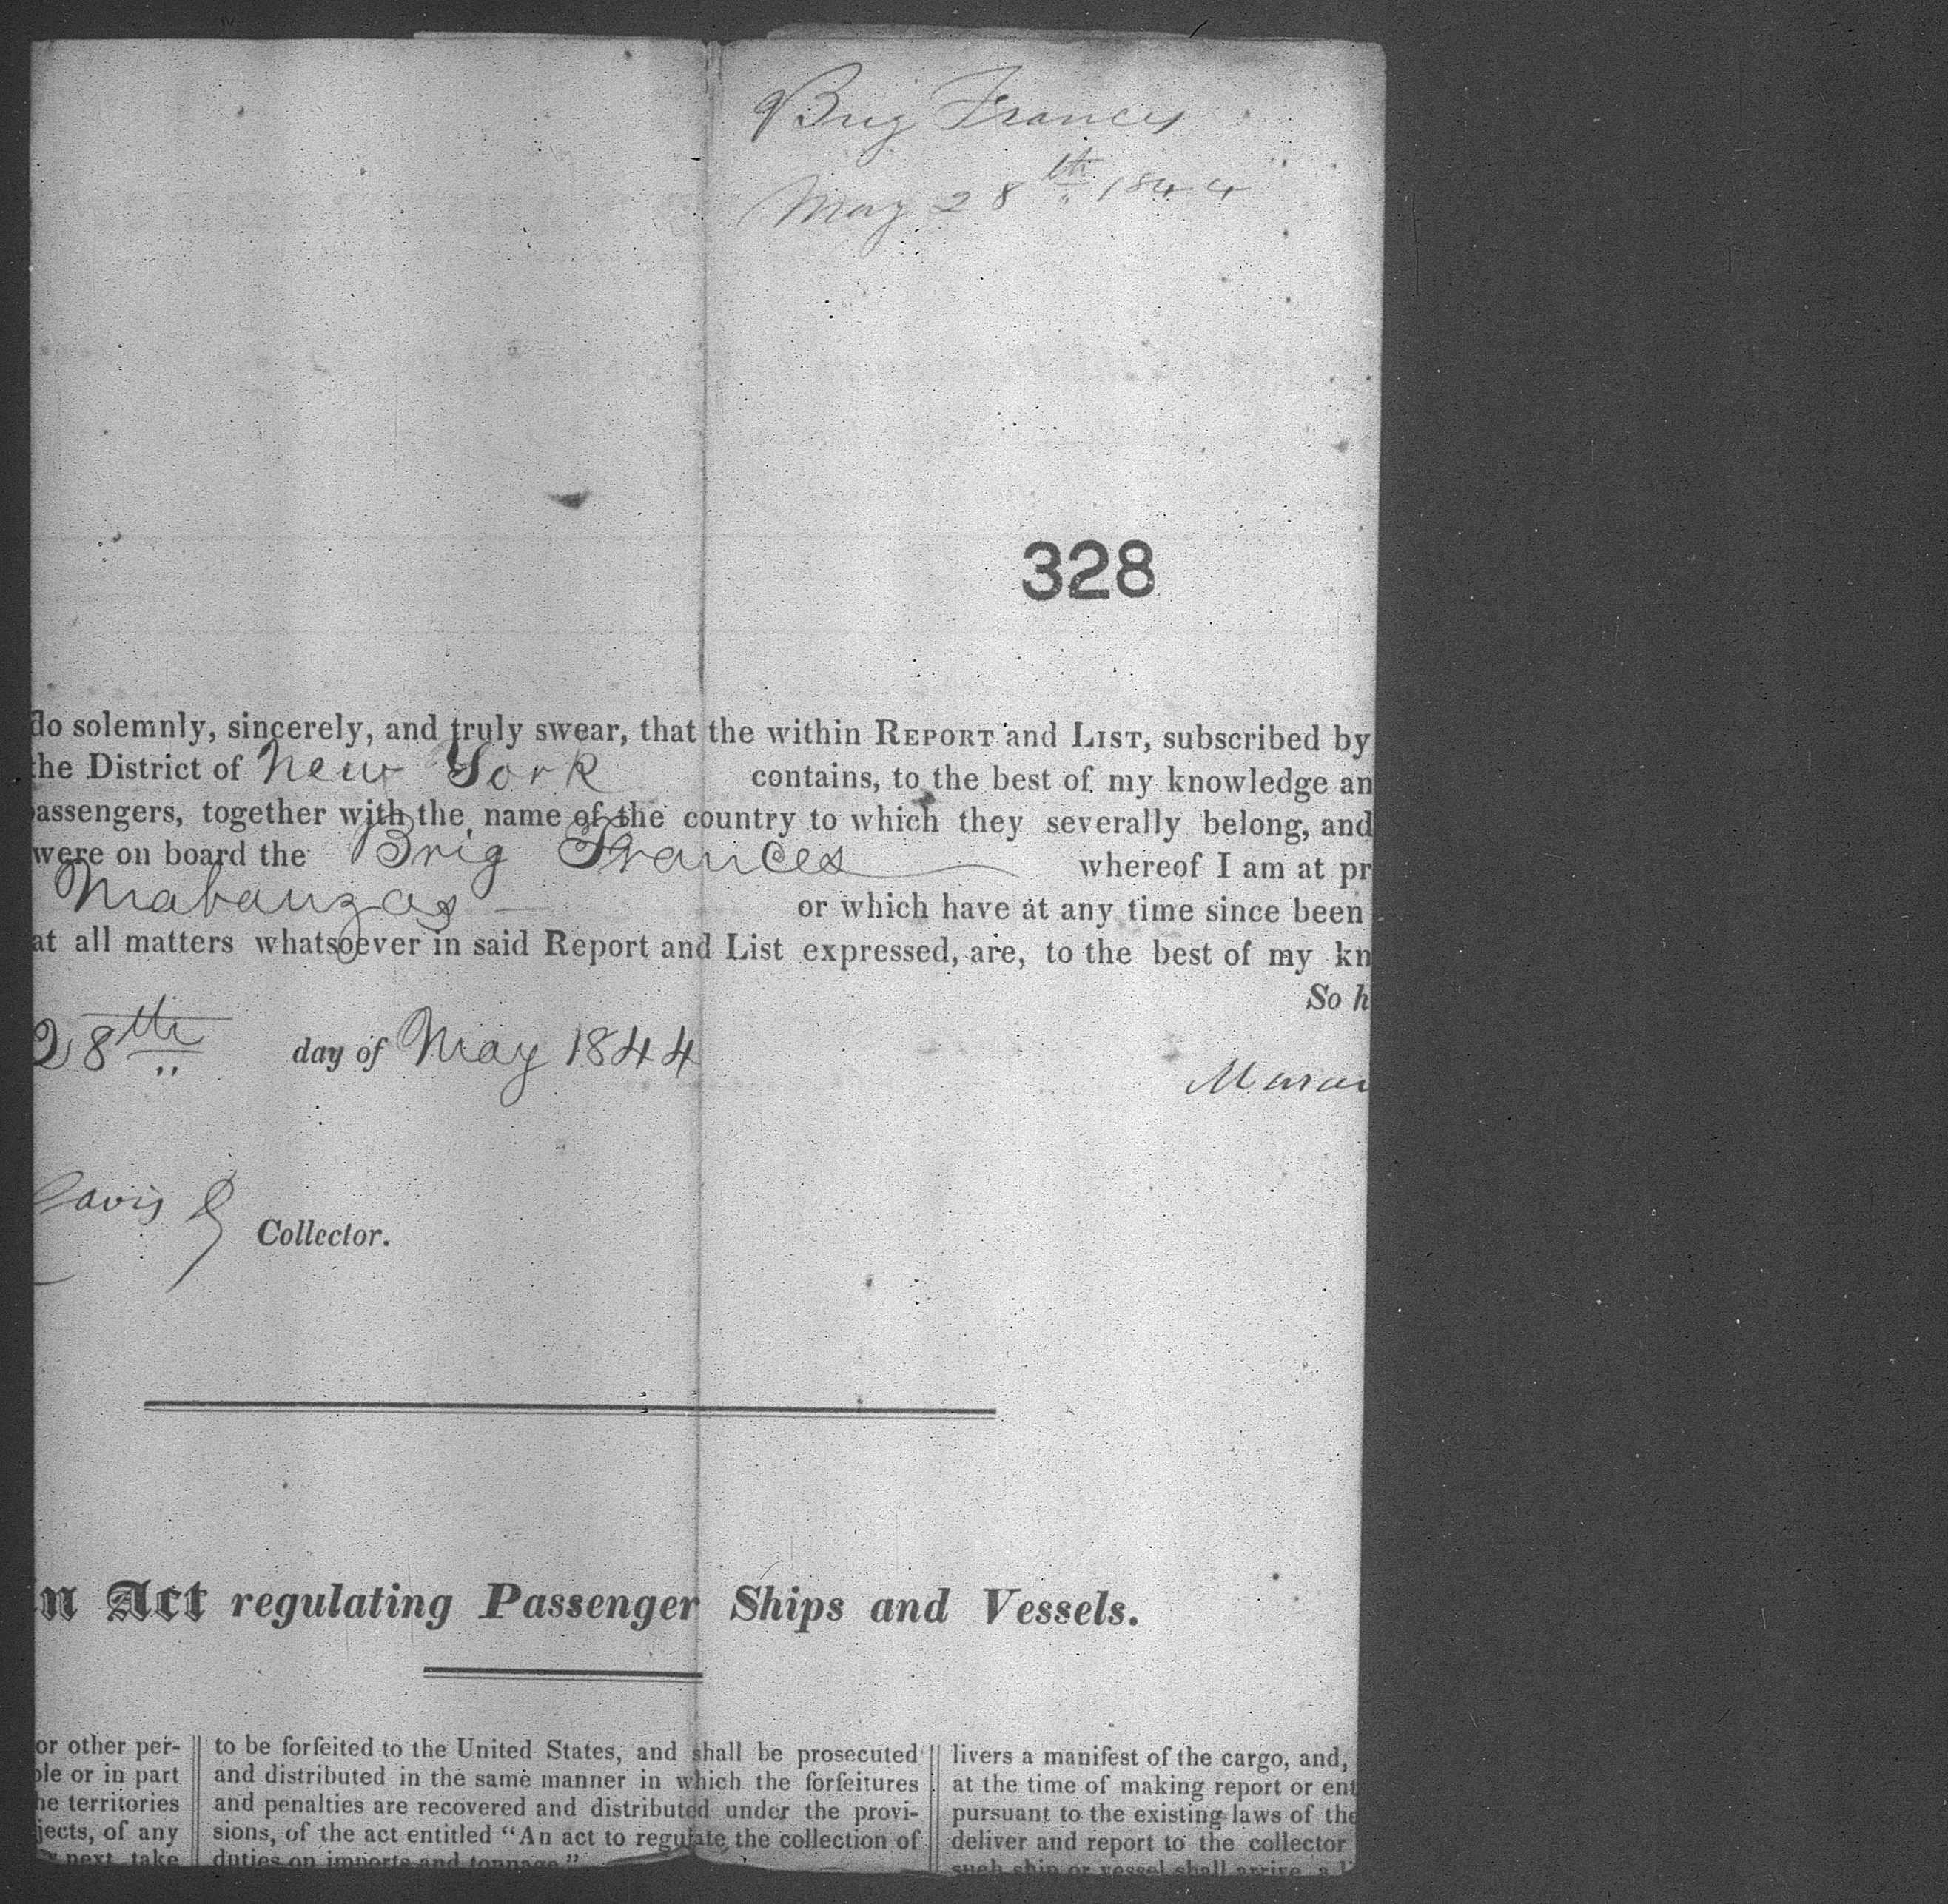 Brig Frances
May 28th 1844
328
do solemnly, sincerely, and truly swear, that the within REPORT and LIST, subscribed by
the District of New York contains, to the best of my knowledge an
assengers, together with the name of the country to which they severally belong, and
were on board the Brig Frances whereof I am at pr
Matanzas or which have at any time since been
at all matters whatsoever in said Report and List expressed, are, to the best of my kn
So h
28th day of May 1844
Davis
Collector.
n Act regulating Passenger Ships and Vessels.
or other per-
ole or in part
he territories
jects, of any
next, take
to be forfeited to the United States, and shall be prosecuted
and distributed in the same manner in which the forfeitures
and penalties are recovered and distributed under the provi-
sions, of the act entitled "An act to regulate the collection of
duties on imports and tonnage."
livers a manifest of the cargo, and,
at the time of making report or ent
pursuant to the existing laws of the
deliver and report to the collector
such ship or vessel shall arrive, a l